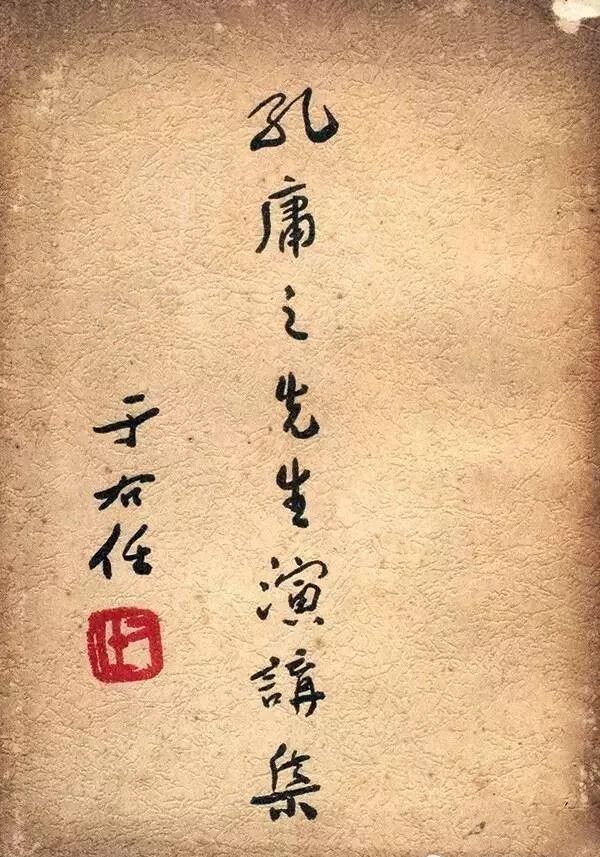 孔庸之先生演講集
于右任